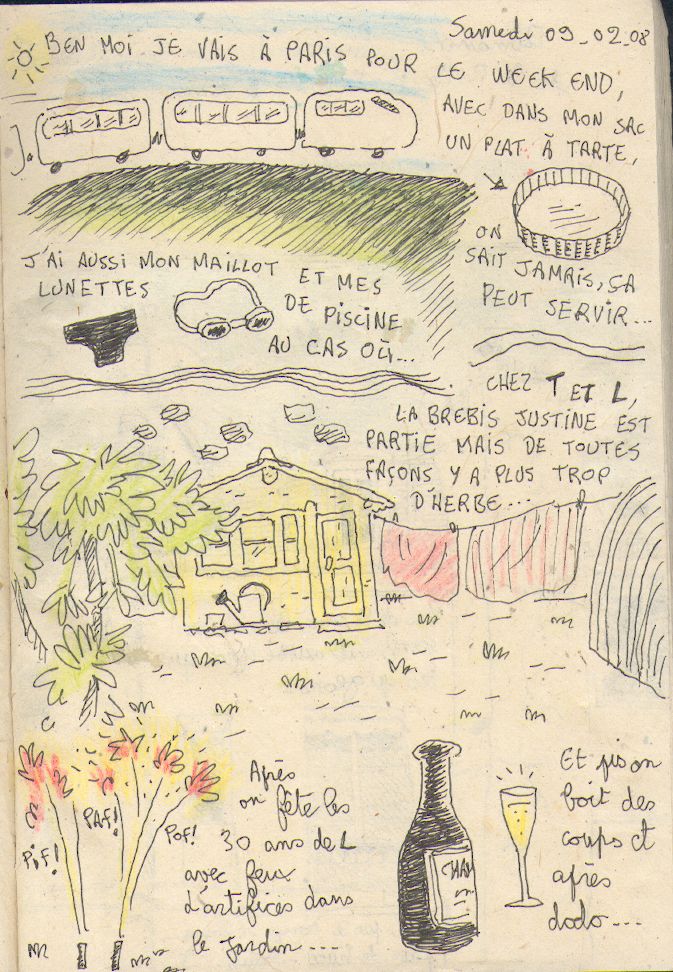 Samedi 09_02_08
BEN MOI JE VAIS À PARIS POUR
LE WEEK END,
AVEC DANS MON SAC
UN PLAT À TARTE,
ON
SAIT JAMAIS, ÇA
PEUT SERVIR...
J'AI AUSSI MON MAILLOT
ET MES
LUNETTES
DE PISCINE
AU CAS OÙ...
CHEZ T ET L,
LA BREBIS JUSTINE EST
PARTIE MAIS DE TOUTES
FAÇONS Y A PLUS TROP
D'HERBE...
PIF!
PAF!
POF!
Après
on fête les
30 ans de L
avec feux
d'artifices dans
le jardin....
CHAM
Et pis on
boit des
coups et
après
dodo...